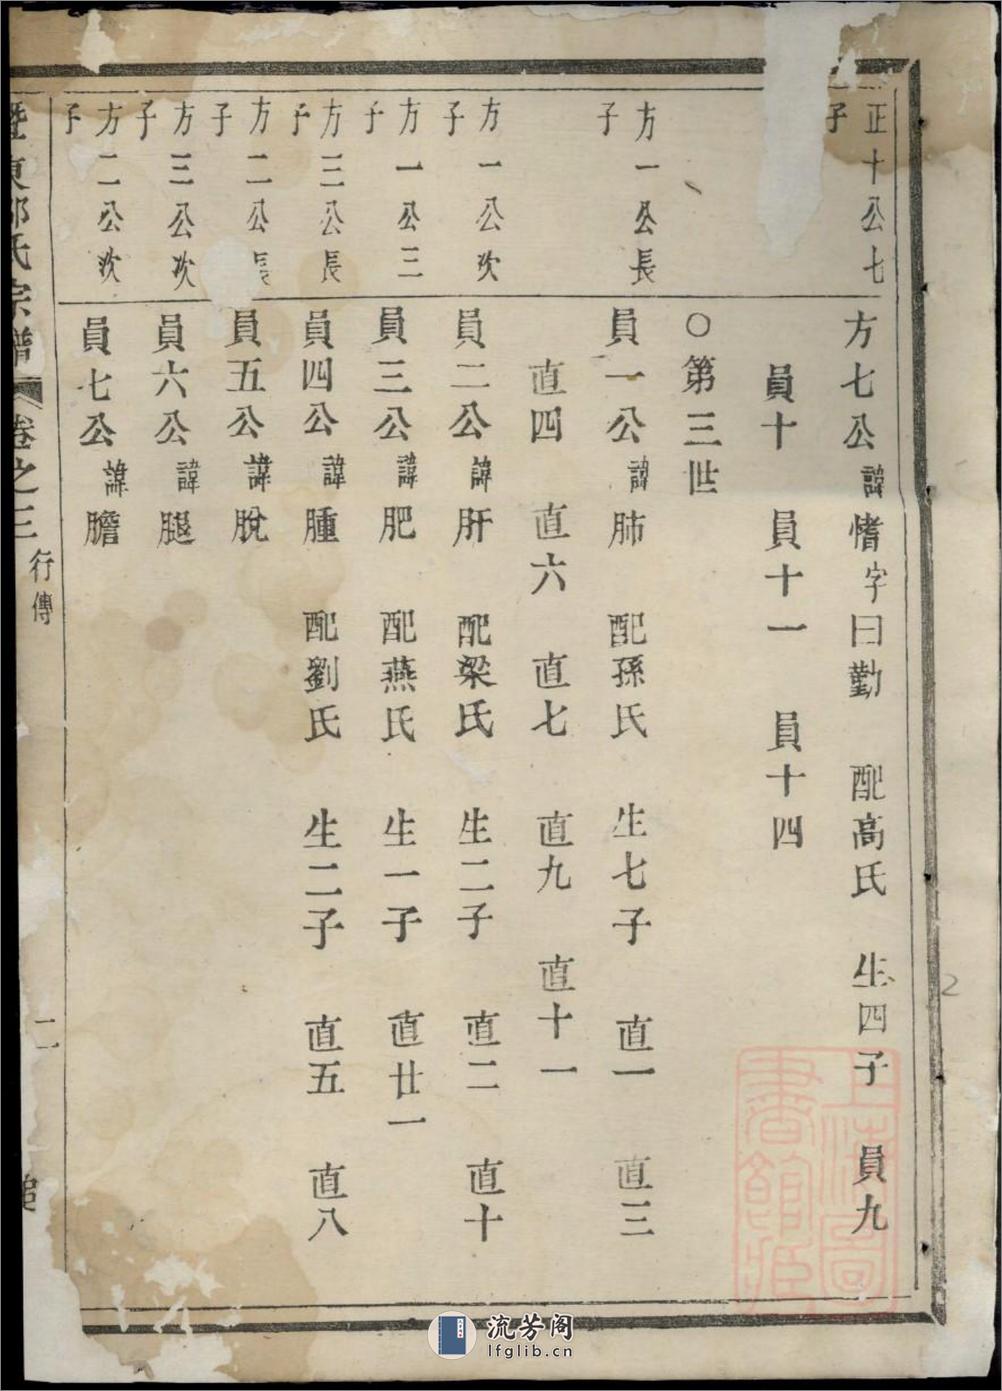 正十公七子
方七公諱愭字曰勤 配高氏 生四子 員九
員十 員十一 員十四
○第三世
方一公長子
員一公諱肺 配孫氏 生七子 直一 直三
直四 直六 直七 直九 直十一
方一公次子
員二公諱肝 配梁氏 生二子 直二 直十
方一公三子
員三公諱肥 配燕氏 生一子 直廿一
方三公長子
員四公諱腫 配劉氏 生二子 直五 直八
方二公長子
員五公諱脫
方三公次子
員六公諱腿
方二公次子
員七公諱膽
暨東 氏宗譜 卷之三 行傳
上海圖書館藏
2
流芳阁
lfglib.cn